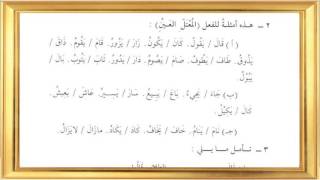 ٢ ـ هـذه أمثـلـةٌ لـلفـعـل (المُعْتَلِّ العَيـنِ) :
( أ ) قَالَ / يَقُولُ. كَانَ / يَكُونُ. زَارَ / يَزُورُ. قَامَ / يَقُومُ. ذَاقَ /
يَذُوقُ. طَافَ / يَطُوفُ. صَامَ / يَصُومُ. دَارَ / يَدُورُ. تَابَ / يَتُوبُ. بَالَ /
يَبُولُ.
(ب) جَاءَ / يَجِيءُ. بَاعَ / يَبِيعُ. سَارَ / يَسِيرُ. عَاشَ / يَعِيشُ.
كَالَ / يَكِيلُ.
(جـ) نَامَ / يَنَامُ. خَافَ / يَخَافُ. كَادَ / يَكَادُ. مازَالَ / لايَزَالُ.
٣ ـ تـأمـل مـا يـلي :